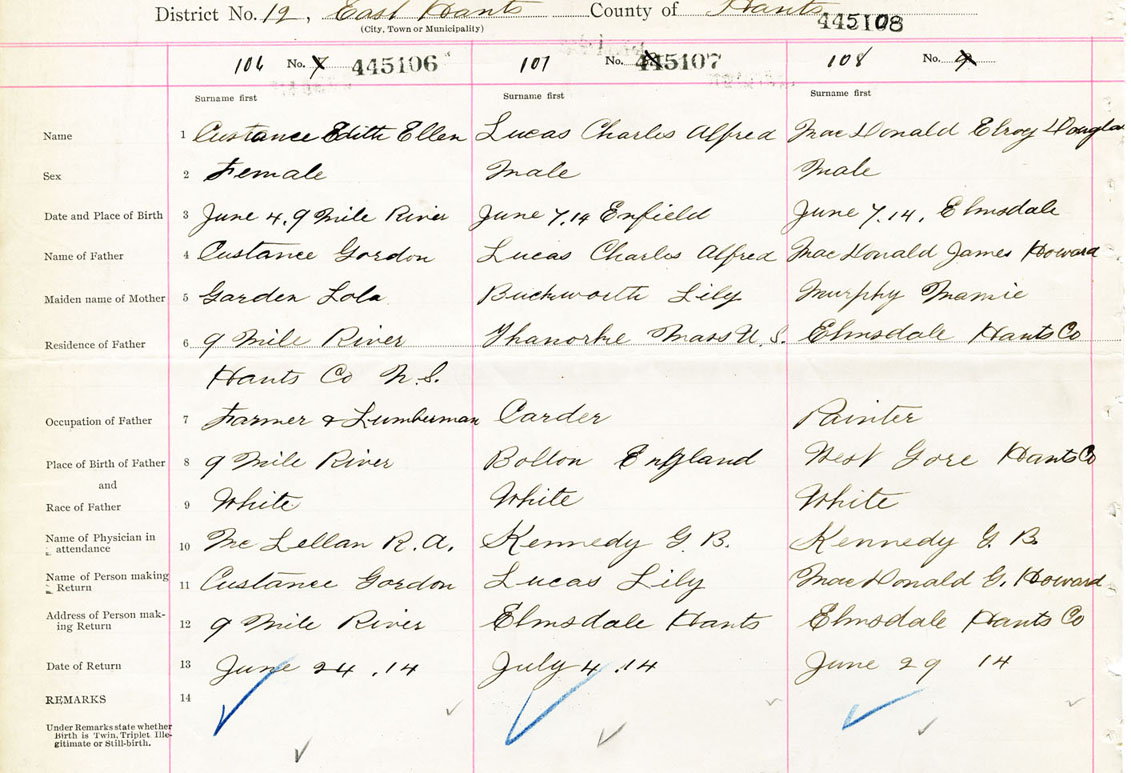 District No. 19, East Hants County of Hants
(City, Town or Municipality)
445108
106 No. 445106 107 No. 445107 108 No. 9
Surname first Surname first Surname first
Name 1 Custance Edith Ellen Lucas Charles Alfred MacDonald Elroy Douglas
Sex 2 Female Male Male
Date and Place of Birth 3 June 4, 9 Mile River June 7.14 Enfield June 7.14, Elmsdale
Name of Father 4 Custance Gordon Lucas Charles Alfred MacDonald James Howard
Maiden name of Mother 5 Garden Lola Buckworth Lily Murphy Mamie
Residence of Father 6 9 Mile River Mass U.S. Elmsdale Hants Co
Hants Co N.S.
Occupation of Father 7 Farmer & Lumberman Carder Painter
Place of Birth of Father 8 9 Mile River Bolton England West Gore Hants Co
and
Race of Father 9 White White White
Name of Physician in
attendance 10 McLellan R.A. Kennedy G.B. Kennedy G.B.
Name of Person making
Return 11 Custance Gordon Lucas Lily MacDonald G. Howard
Address of Person mak-
ing Return 12 9 Mile River Elmsdale Hants Elmsdale Hants Co
Date of Return 13 June 24 .14 July 4 .14 June 29 14
REMARKS 14
Under Remarks state whether
Birth is Twin, Triplet Ille-
gitimate or Still-birth.